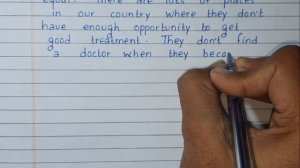 equal. There are lots of places
in our country where they don't
have enough opportunity to get
good treatment. They don't find
a doctor when they beco